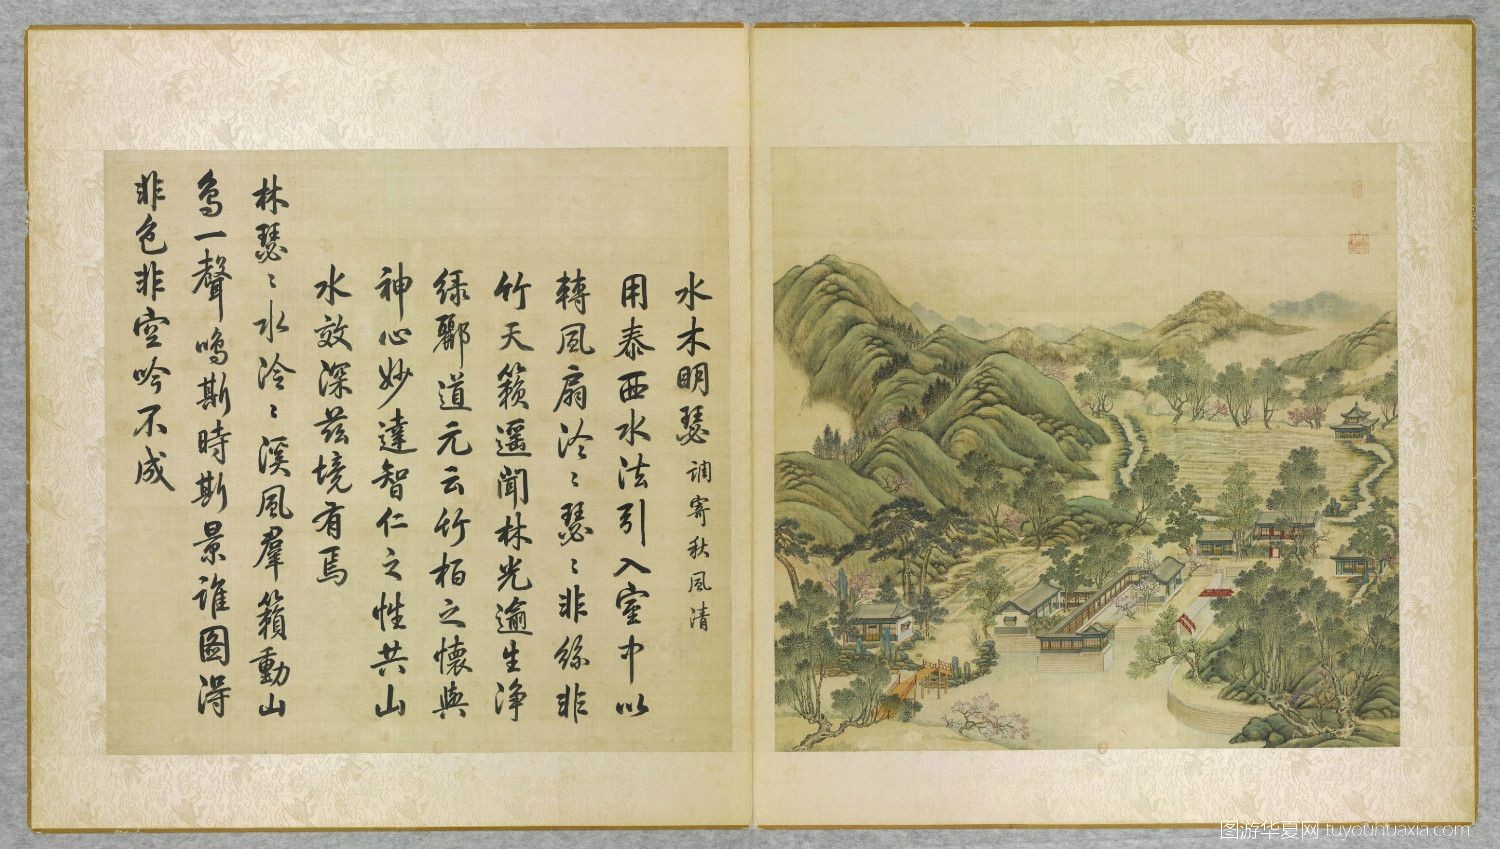 水木明瑟 调寄秋風清
用泰西水法引入室中以
轉風扇泠〻瑟〻非絲非
竹天籟遥聞林光逾生淨
緑酈道元云竹柏之懷與
神心妙達智仁之性共山
水效深兹境有焉
林瑟〻水泠〻溪風羣籟動山
鳥一聲鳴斯時斯景誰圖得
非色非空吟不成
图游华夏网 tuyouhuaxia.com